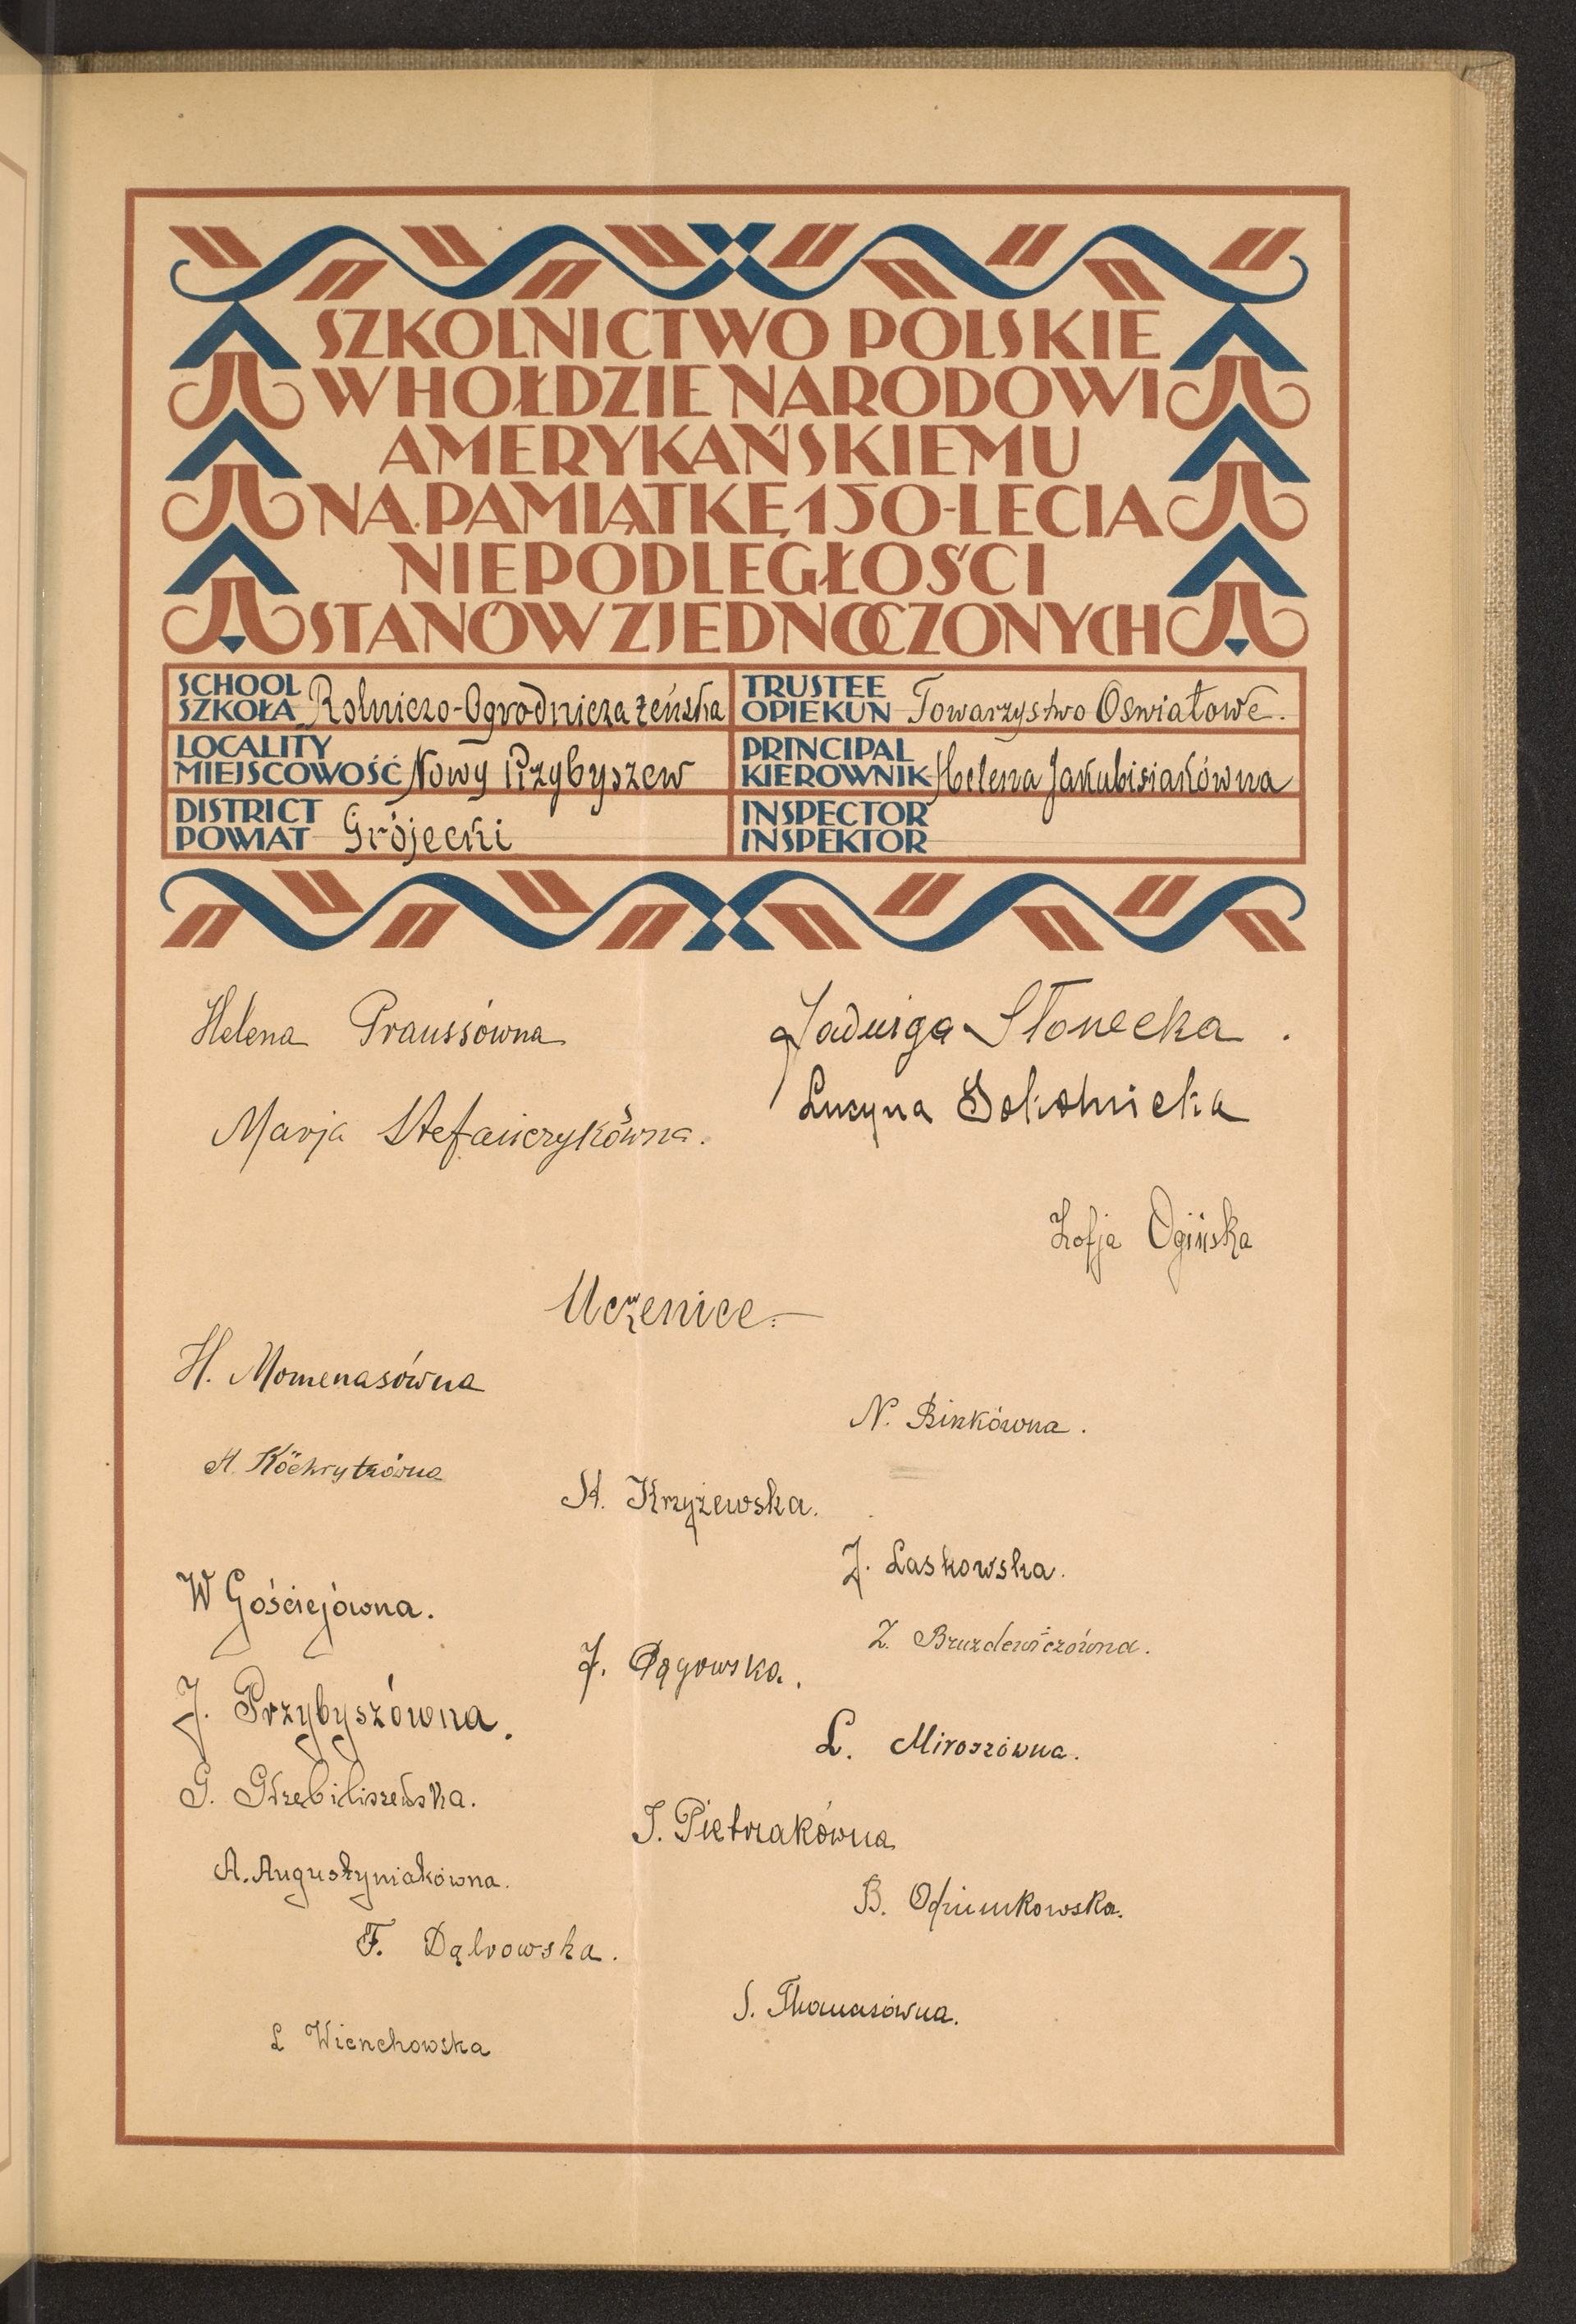 SZKOLNICTWO POLSKIE
W HOŁDZIE NARODOWI
AMERYKAŃSKIEMU
NA PAMIĄTKĘ 150-LECIA
NIEPODLEGŁOŚCI
STANÓW ZJEDNOCZONYCH
SCHOOL
SZKOŁA Rolniczo-Ogrodnicza żeńska
TRUSTEE
OPIEKUN Towarzystwo Oswiatowe.
LOCALITY
MIEJSCOWOŚĆ Nowy Przybyszew
PRINCIPAL
KIEROWNIK Helena Jakubisiakówna
DISTRICT
POWIAT Grójecki
INSPECTOR
INSPEKTOR
Helena Praussówna
Jadwiga Słonecka.
Lucyna Sokolnicka
Marja Stefańczykówna.
Zofja Ogińska
Uczenice:
H. Momenasówna
N. Binkówna.
H.
St. Krzyżewska.
J. Laskowska.
W Gościejówna.
Z. Bruzdewiczówna.
J.
J. Przybyszówna.
L. Miroszówna.
G.
J. Pietrzakówna
A. Augustyniakówna.
B.
F. Dąbrowska.
S. Thomasówna.
L Wienchowska